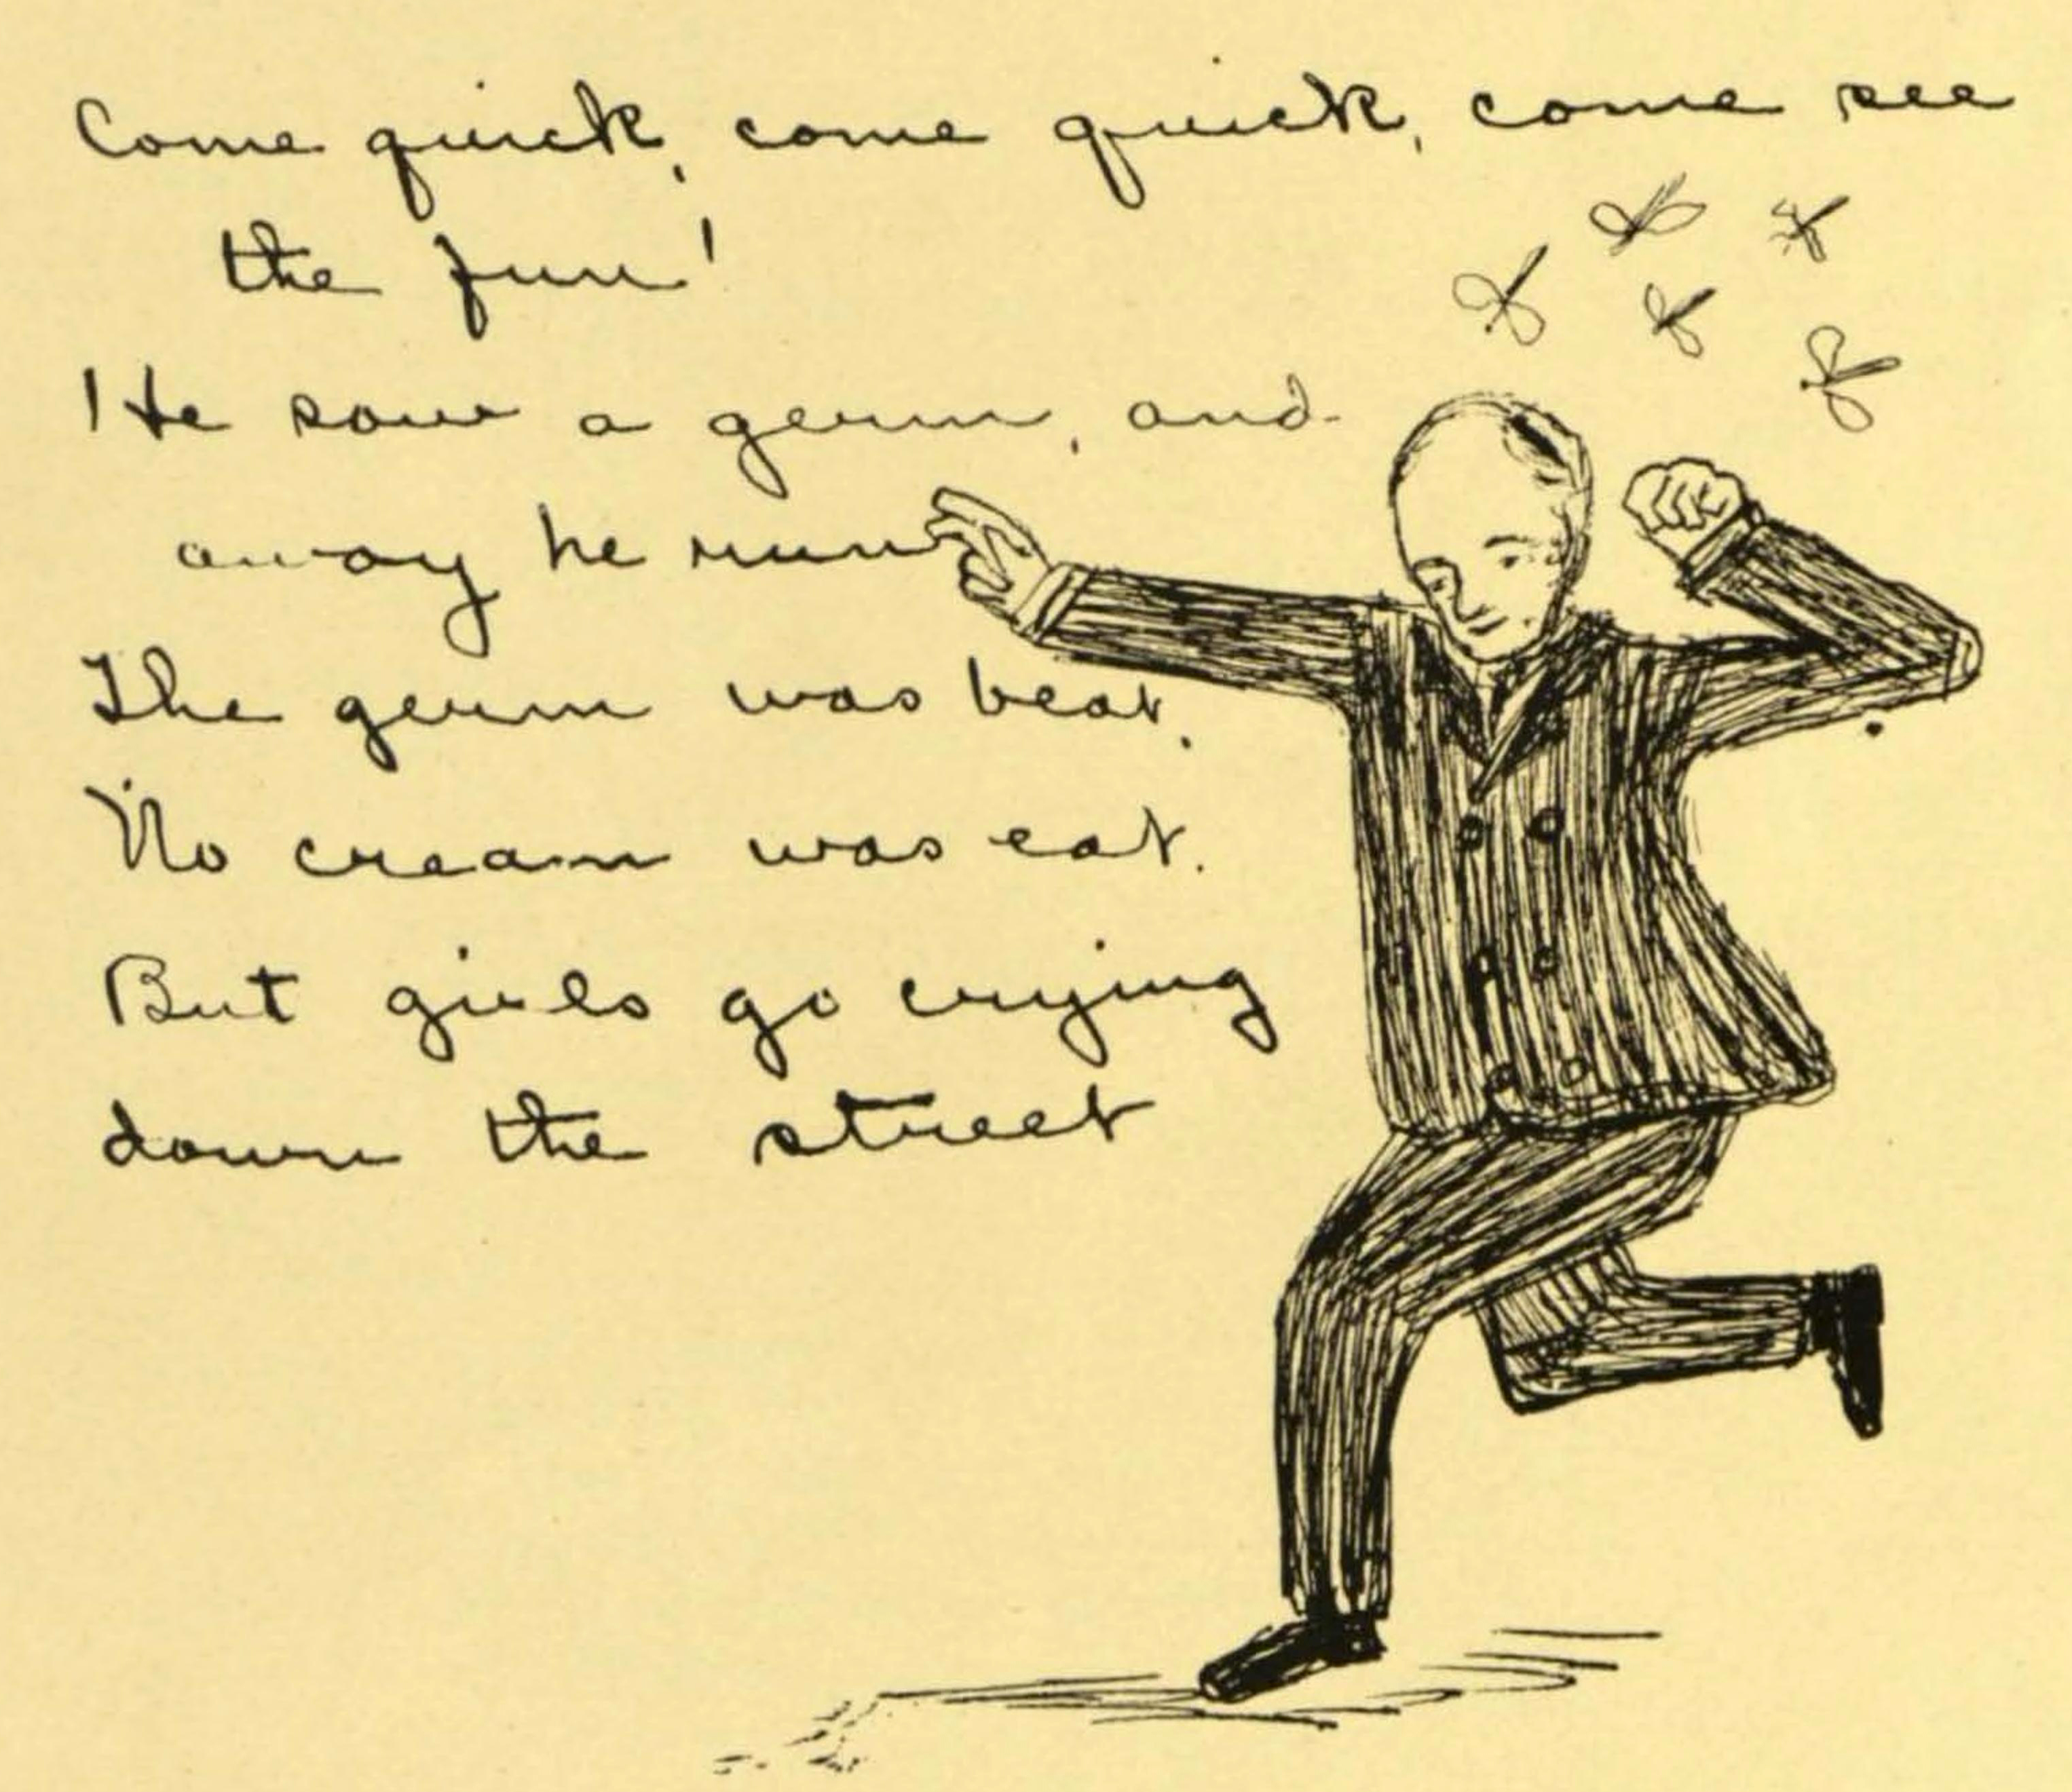 Come quick, come quick, come see
the fun!
He saw a germ, and
away he run
The germ was beat,
No cream was eat.
But girls go crying
down the street